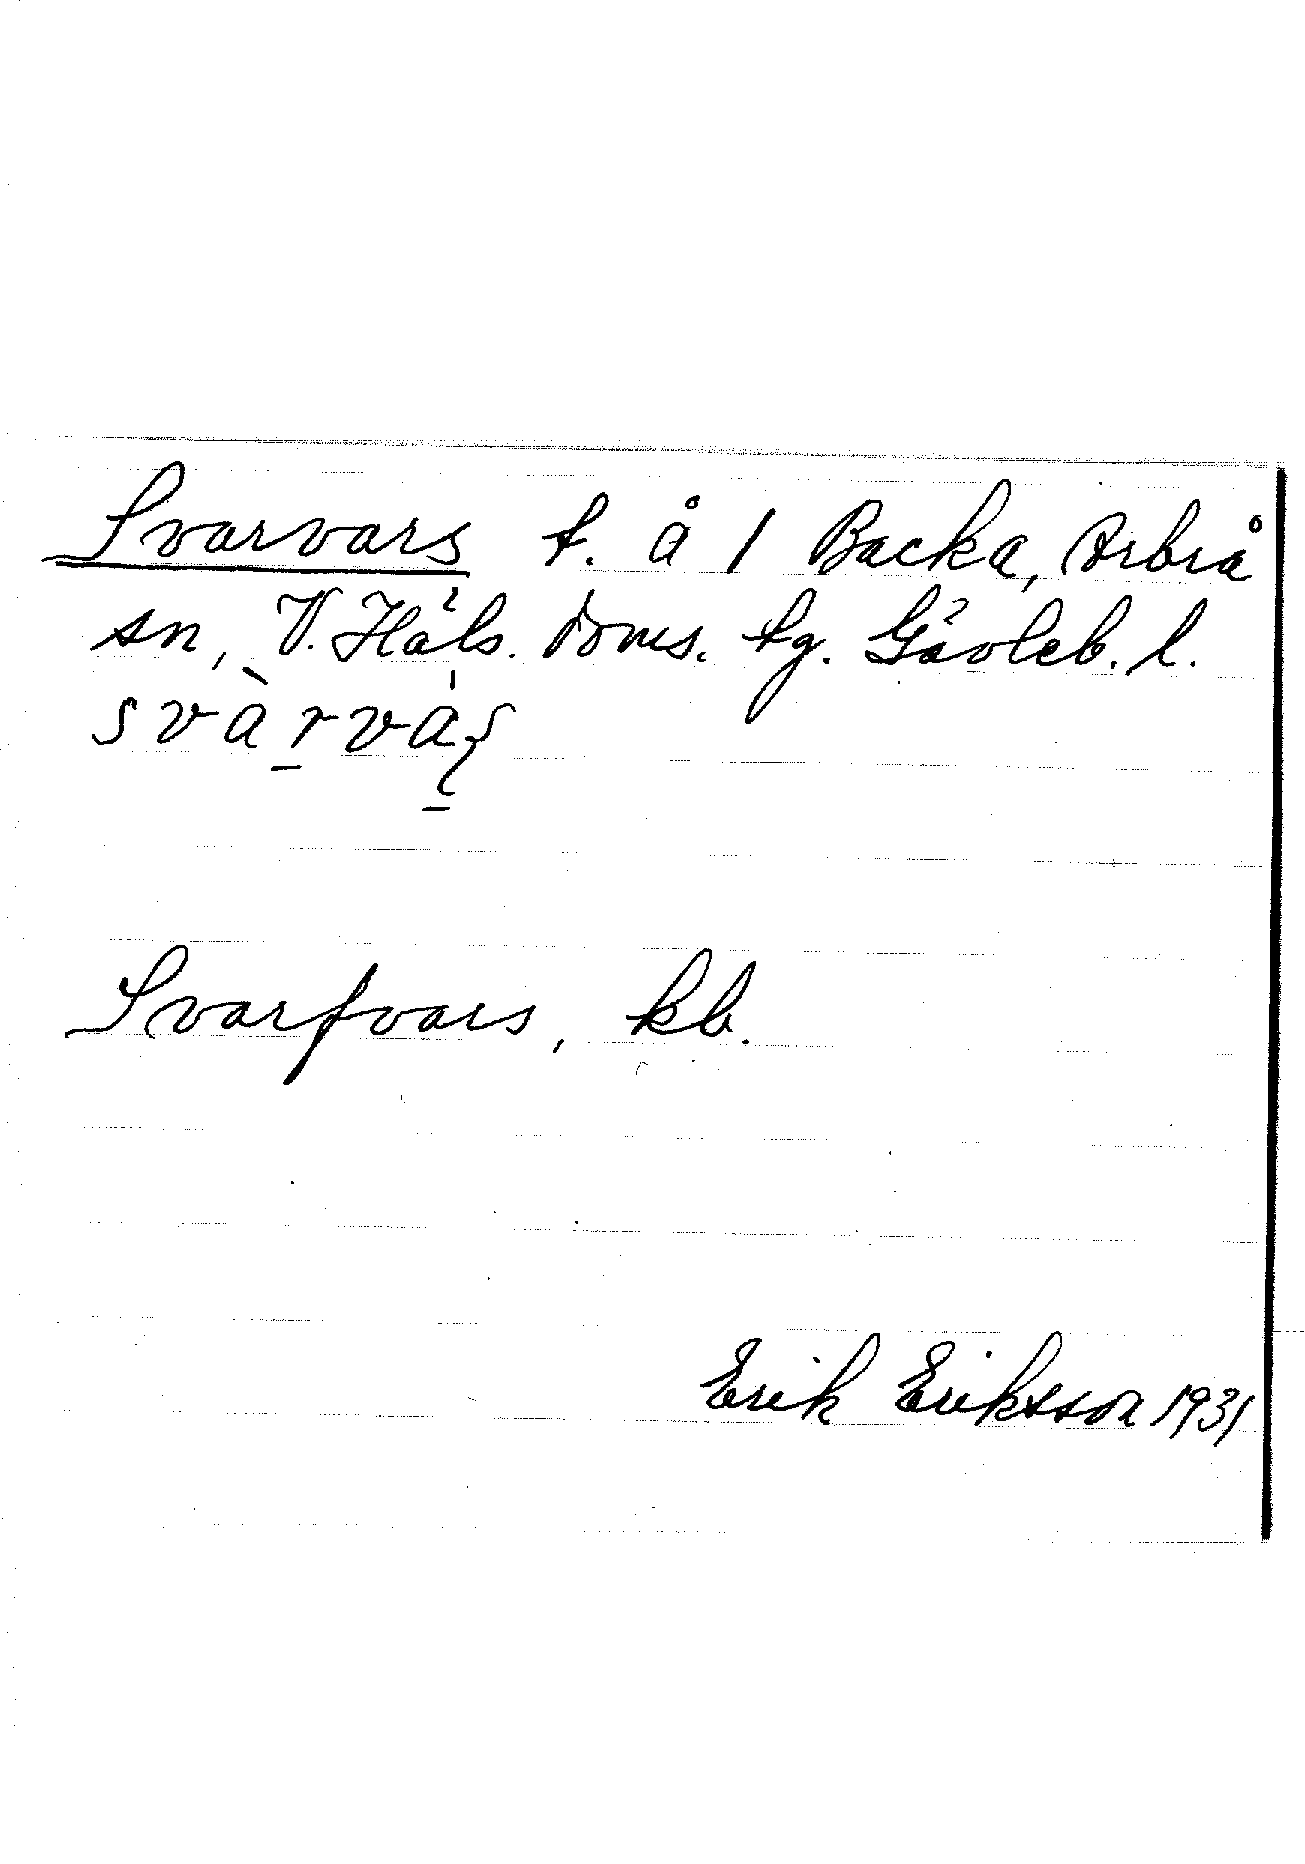 Svarvars t. å 1 Backa, Arbrå
sn, V. Häls. doms. tg. Gävleb. l.
svàrvaʂ
Svarfvars, kb.
Erik Eriksson 1931